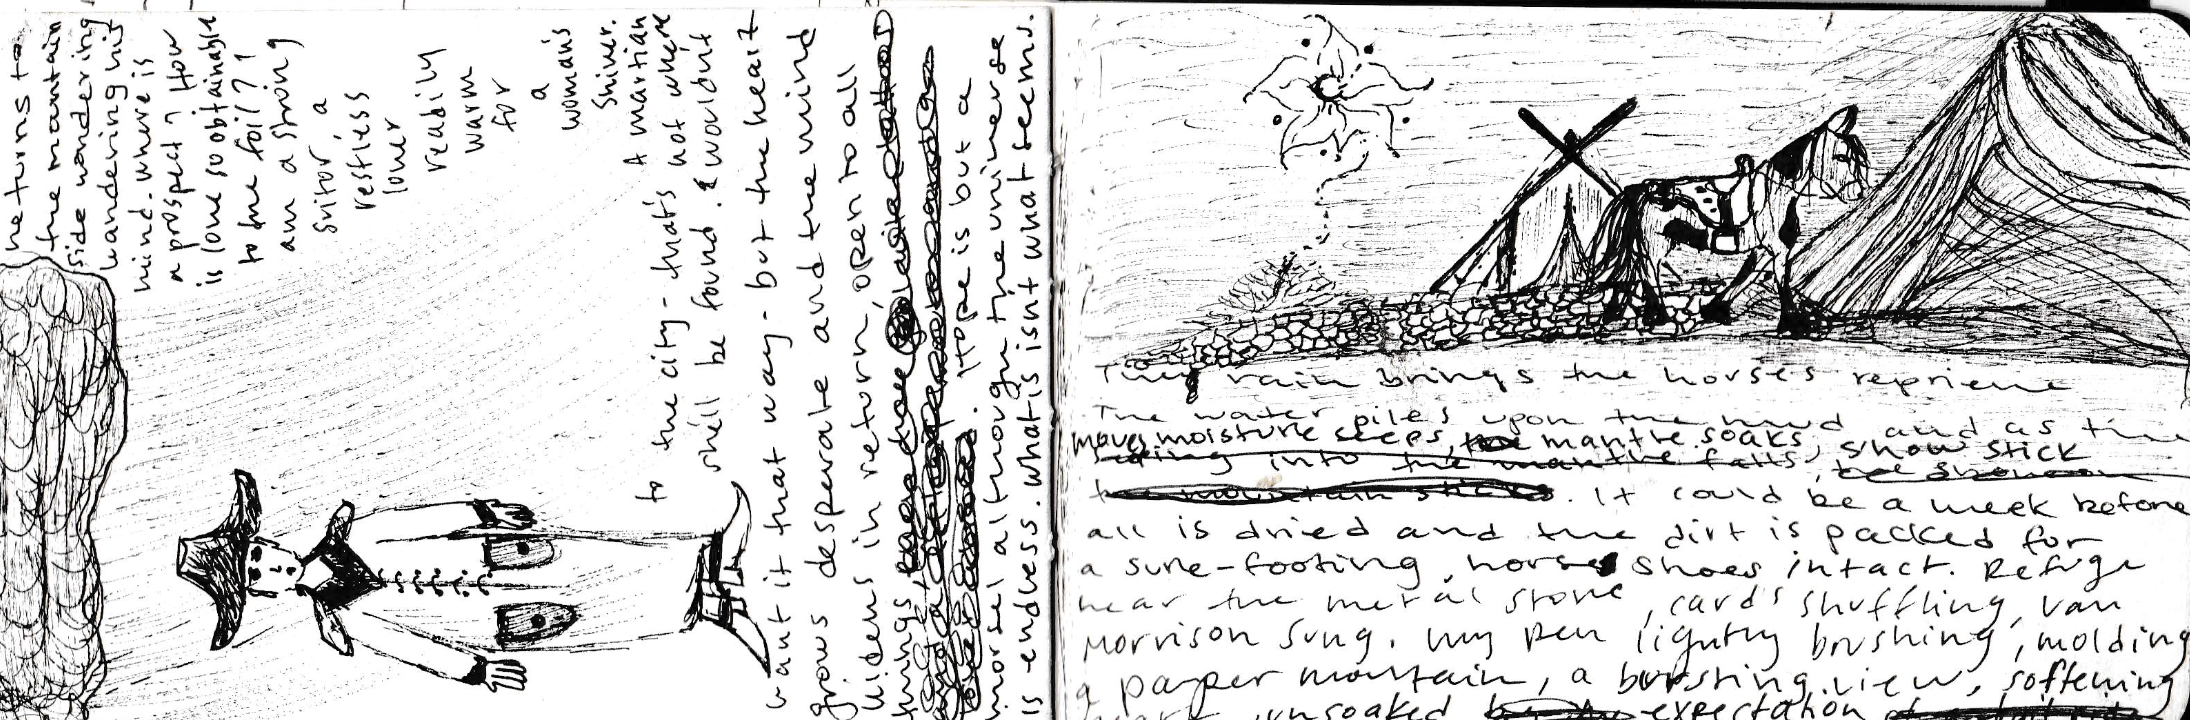 he turns to
the mountain
side wondering
wandering his
mind. where is
a prospect? How
is love so obtainable
to the foil??
am a strong
suitor a
restless
lover
readily
warm
for
a
woman's
shiver.
A martian
to the city - that's not where
she'll be found. & wouldnt
want it that way - but the heart
grows desperate and the mind
widens in return, open to all
things,
. Hope is but a
morsel although the universe
is endless. what is isnt what seems.
The rain brings the horses reprieve
The water piles upon the mud and as the
moves, moisture seeps, mantre soaks, shoes stick
seeing into the mantre falls,
. It could be a week before
all is dried and the dirt is packed for
a sure-footing, horse shoes intact. Refuge
near the metal stove, cards shuffling, van
morrison sung. my pen lightly brushing, molding
a paper mountain, a bursting view, softening
heart, unsoaked expectation